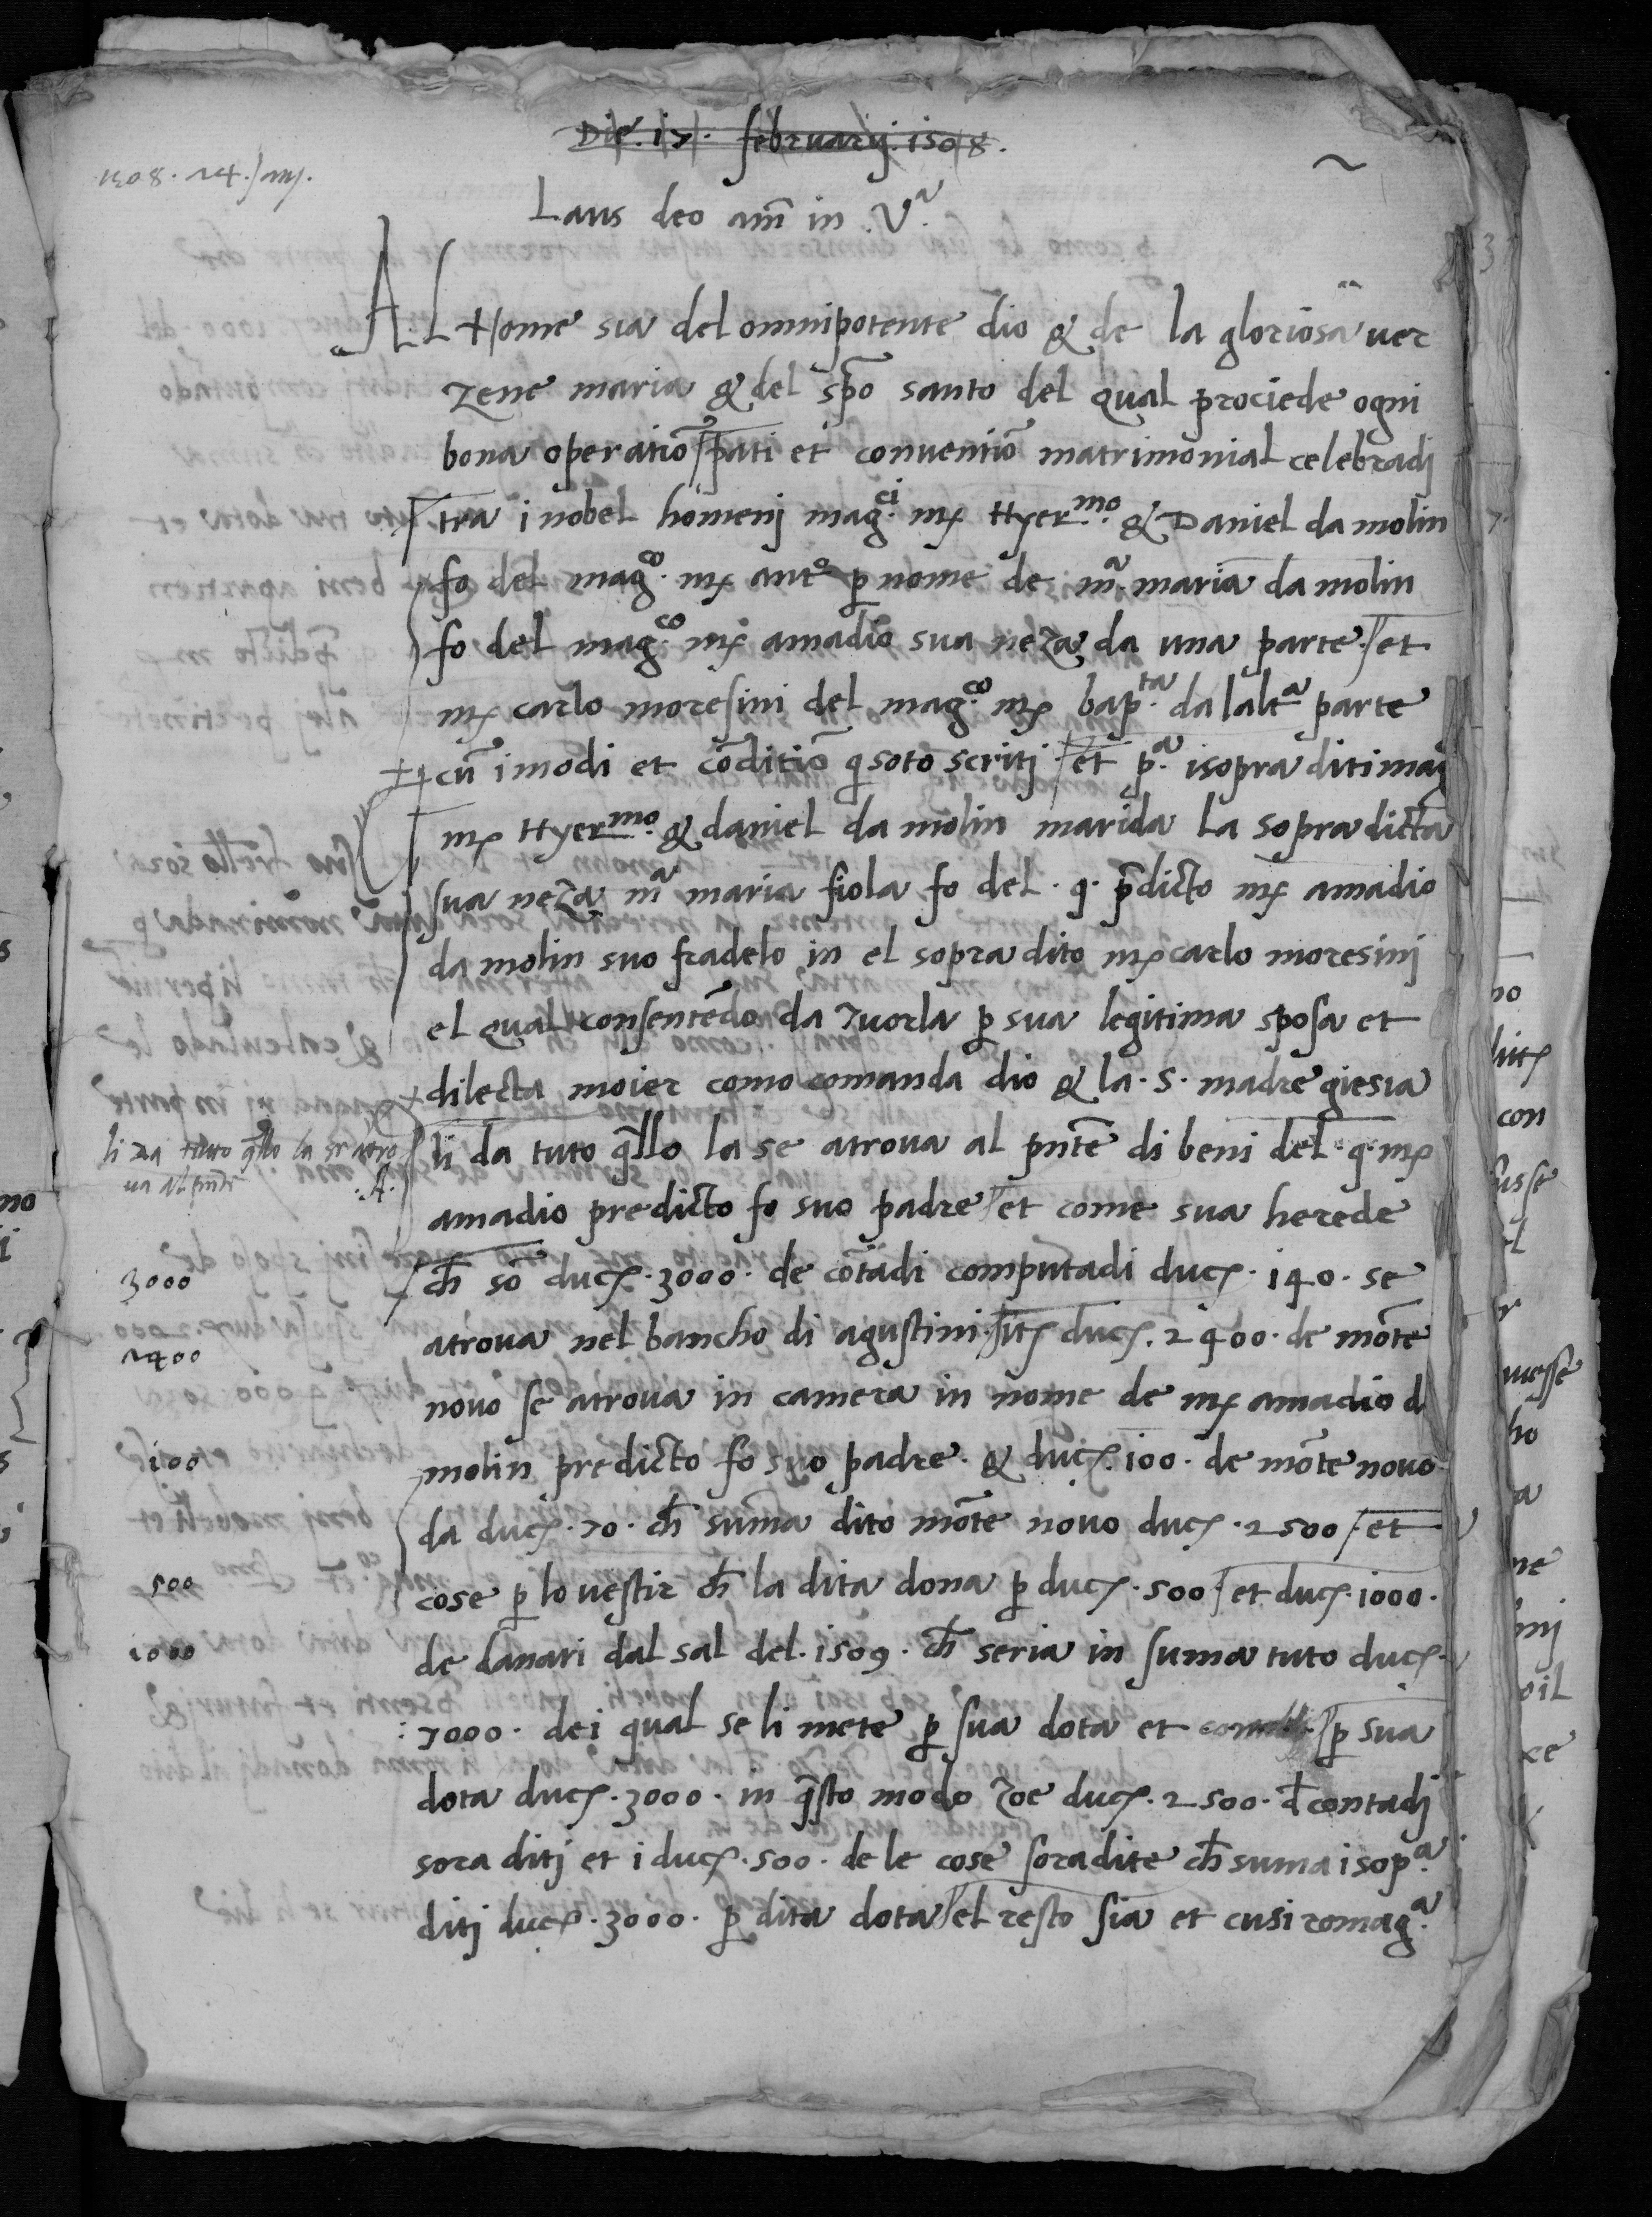 Die. 17. februarij. 1508.
1508. 24. Jan.
Laus deo am̄ in .Vᵃ.
AL Nome sia del omnipotente dio & de la gloriosa ver
zene maria & del sp̄o santo del qual prociede ogni
bona operatiō pati et conventiō matrimonial celebradi
tra i nobel homenj mag.ci mx Hyer.mo & Daniel da molin
fo del mag.co mx antº ꝑ nome de mᵃ. maria da molin
fo del mag.co mx amadio sua neza da una parte. et
mx carlo moresini del mag.co mx bap.ta da laltᵃ parte
cū i modi et cōditiō q̄ soto scritj. et pᵃ. i sopra diti mag
mx Hyer.mo & daniel da molin marida la sopra dicta
sua neza mᵃ maria fiola fo del. q. p̄dicto mx amadio
da molin suo fradelo in el sopra dito mx carlo moresinj
el qual consentēdo da tuorla ꝑ sua legitima sposa et
dilecta moier como comanda dio & la. S. madre giesia
li da tuto q̄llo la se atro
va al pn̄te .A.
li da tuto q̄llo la se atrova al pn̄te di beni del. q. mx
amadio predicto fo suo padre et come sua herede
3000
ch̄ sō ducx. 3000. de cōtadi computadi ducx. 140. se
2400
atrova nel bancho di agustini. itx ducx. 2400. de mōte
novo se atrova in camera in nome de mx amadio d
100
molin predicto fo suo padre. & ducx. 100. de mōte novo
da ducx. 70. ch̄ suma dito mōte novo ducx. 2500. et
500
cose ꝑ lo vestir ch̄ la dita dona ꝑ ducx. 500. et ducx. 1000.
1000
de danari dal sal del. 1509. ch̄ seria in suma tuto ducx.
7000. dei qual se li mete ꝑ sua dota et ꝑ sua
dota ducx. 3000. in q̄sto modo zoe ducx. 2500. d̄ contadj
sora ditj et i ducx. 500. de le cose soradite ch̄ suma i sopᵃ.
ditj ducx. 3000. ꝑ dita dota el resto sia et cusi romagᵃ.